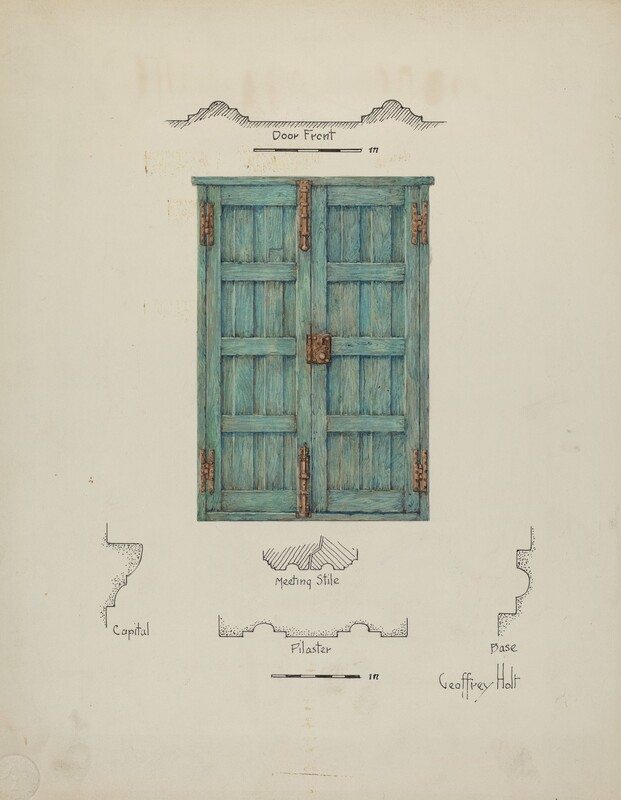 Door Front
in
Meeting Stile
Capital
Pilaster
Base
in
Geoffrey Holt